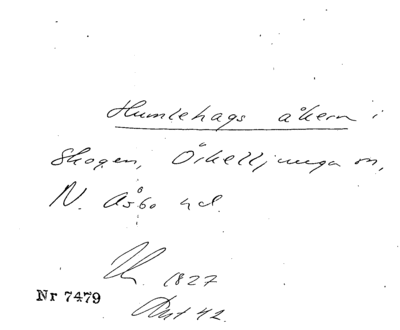 Humlehags åkern i
Skogen, Örkelljunga sn,
N. Åsbo hd.
1827
Nr 7479
Akt 42.